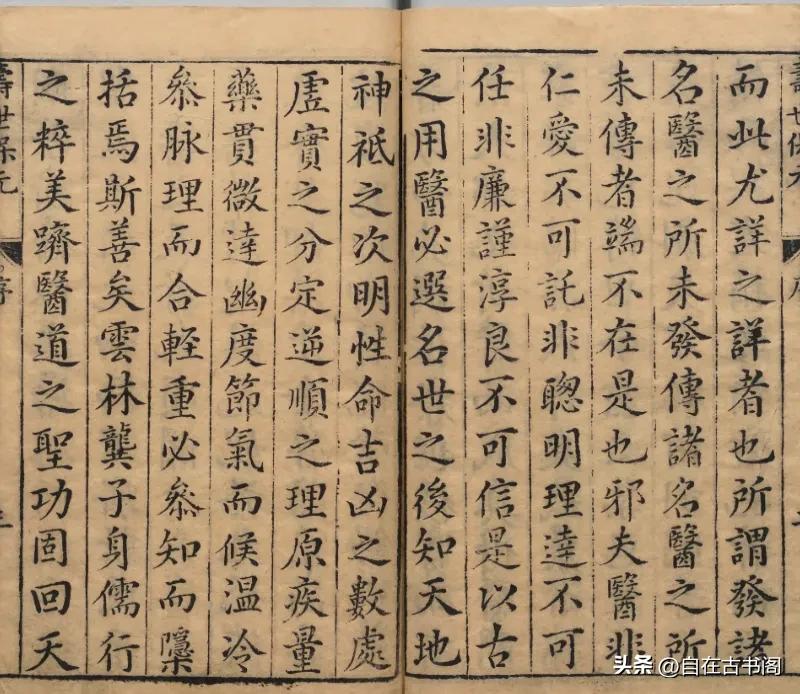 壽世保元
序
而此尤詳之詳者也所謂發諸
名醫之所未發傳諸名醫之所
未傳者端不在是也邪夫醫非
仁愛不可託非聰明理達不可
任非廉謹淳良不可信是以古
之用醫必選名世之後知天地
神祇之次明性命吉凶之數處
虛實之分定逆順之理原疾量
藥貫微達幽度節氣而候温冷
叅脉理而合軽重必叅知而檃
括焉斯善矣雲林龔子身儒行
之粹美躋醫道之聖功固回天
壽世保元
序
头条 @自在古书阁